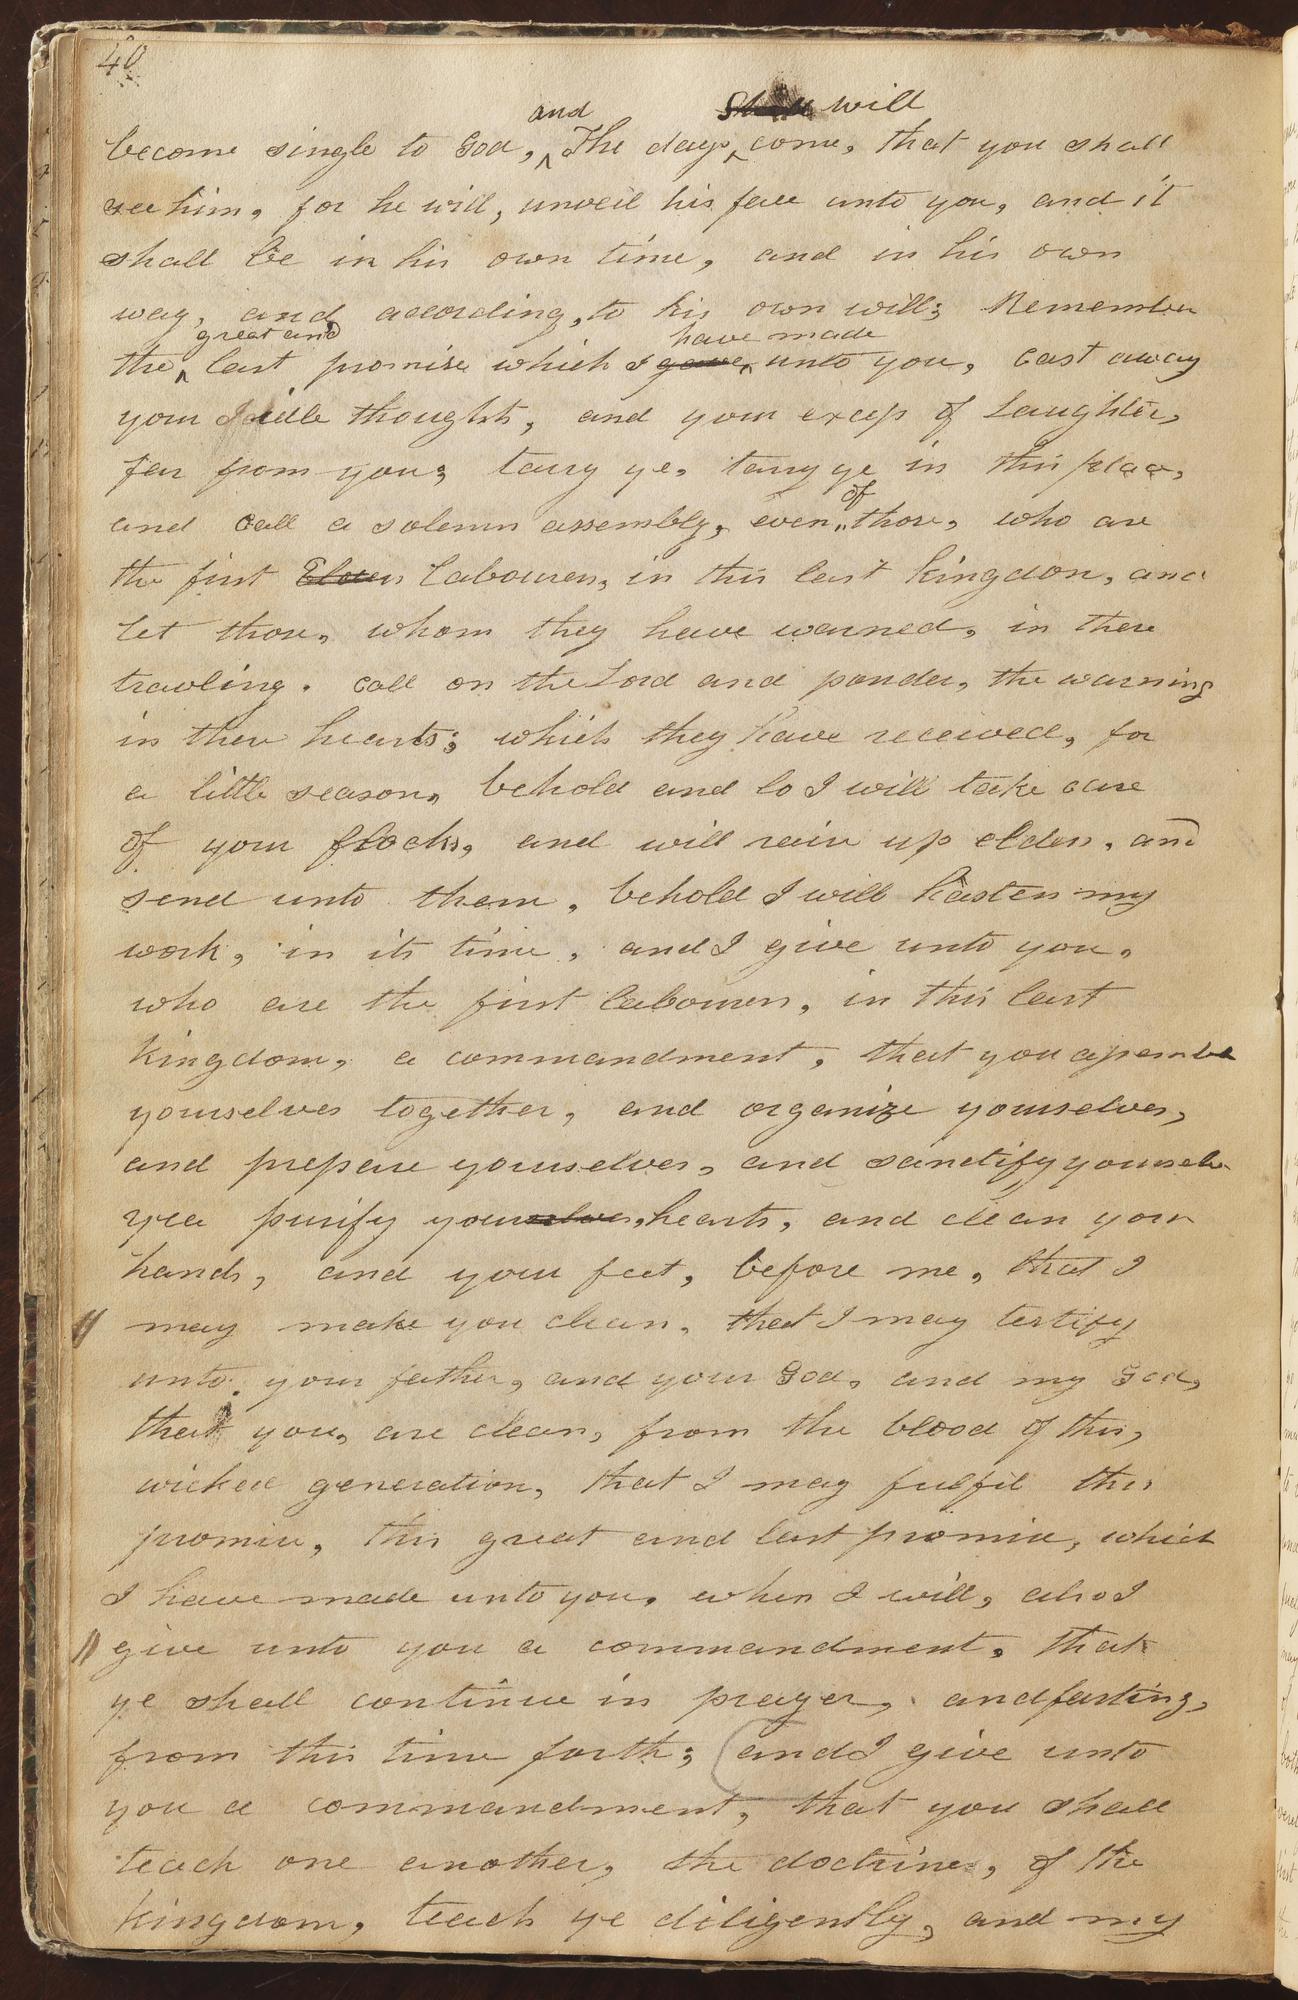 40
and Shall will
become single to God, ^ The days ^ come, that you shall
see him, for he will, unveil his face unto you, and it
shall be in his own time, and in his own
way, and according, to his own will; Remember
great and have made
the ^ last promise which I gave, unto you, cast away
your idle thoughts, and your excess of Laughter,
far from you; tarry ye, tarry ye in this place,
of
and call a solemn assembly, even, those, who are
the first labourers, in this last kingdon, and
let those, whom they have warned, in there
travling. call on the Lord and ponder, the warning
in there hearts; which they have received, for
a little season, behold and lo I will take care
of your flocks, and will raise up elders, and
send unto them, behold I will hasten my
work, in its time, and I give unto you,
who are the first labourers, in this last
kingdom, a commandment, that you assemble
yourselves together, and organize yourselves,
and prepare yourselves, and sanctify yourselves
yea purify yourselves, hearts, and clean your
hands, and your feet, before me, that I
// may make you clean, that I may testify
unto your father, and your God, and my God,
that you, are clean, from the blood of this,
wicked generation, that I may fulfil this
promise, this great and last promise, which
I have made unto you, when I will, also I
// give unto you a commandment, that
ye shall continue in prayer, and fasting,
from this time forth; (and I give unto
you a commandment, that you shall
teach one another, the doctrine, of the
kingdom, teach ye diligently, and my